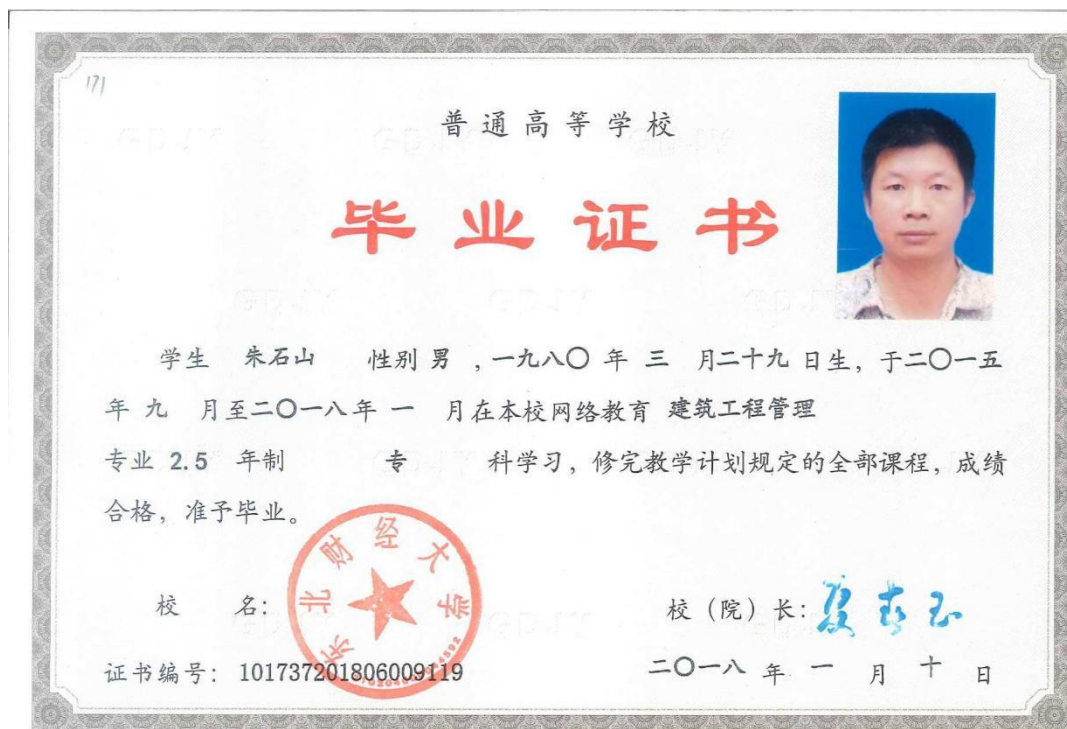 171
普通高等学校
毕业证书
学生 朱石山 性别 男 ,一九八〇 年 三 月二十九 日生，于二〇一五
年 九 月至二〇一八年 一 月在本校网络教育 建筑工程管理
专业 2.5 年制 专 科学习，修完教学计划规定的全部课程，成绩
合格，准予毕业。
东北财经大学
校 名： 校（院）长：夏春玉
证书编号：101737201806009119 二〇一八 年 一 月 十 日